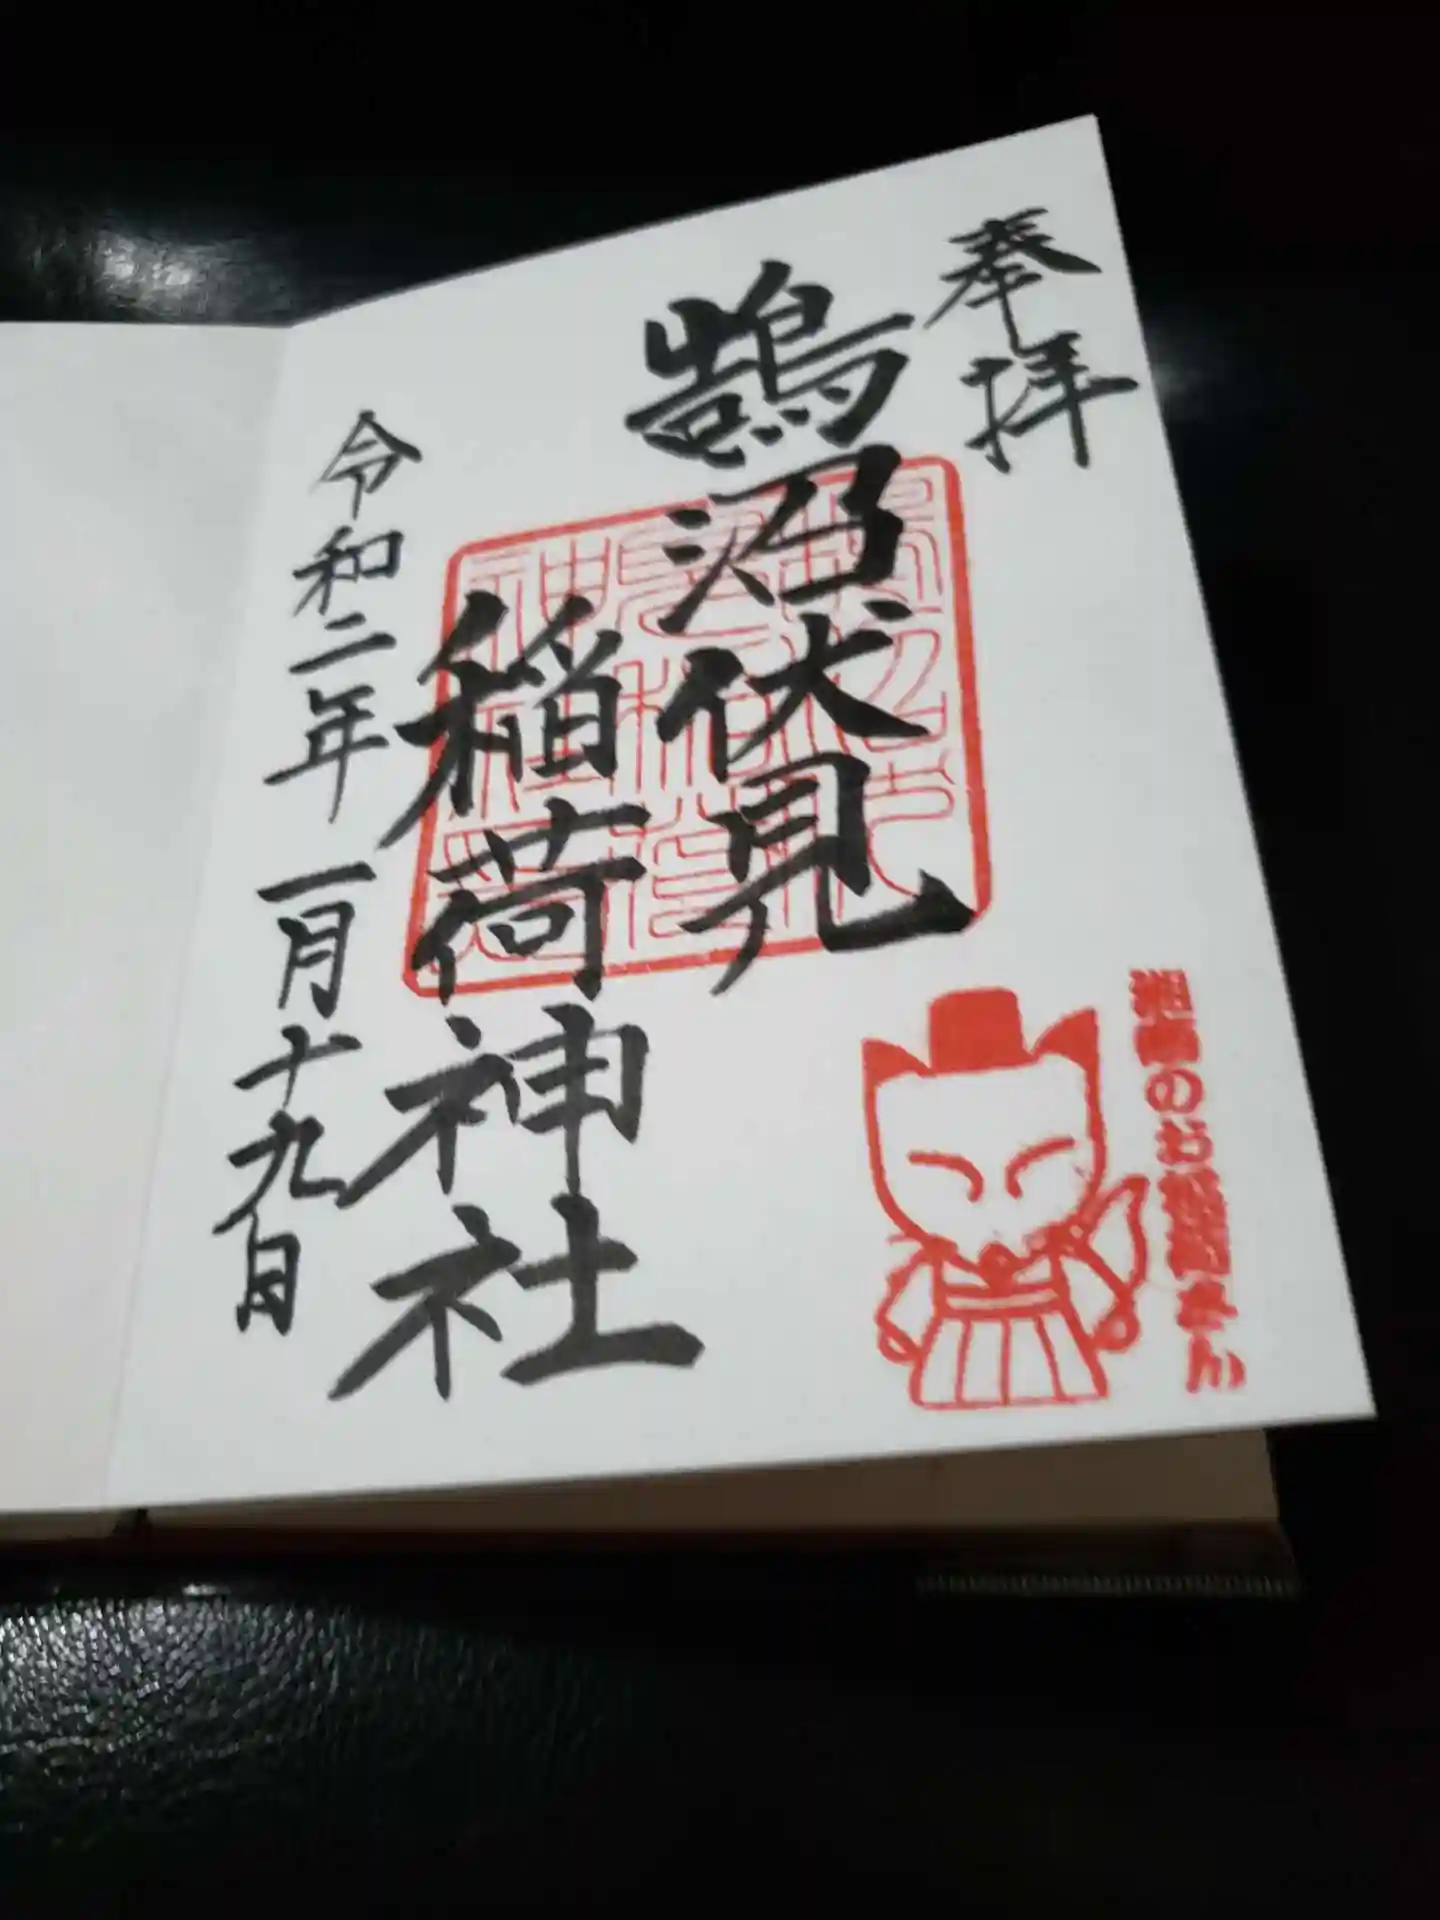 奉拝
鵠沼伏見
稲荷神社
令和二年一月十九日
湘南のお稲荷さん